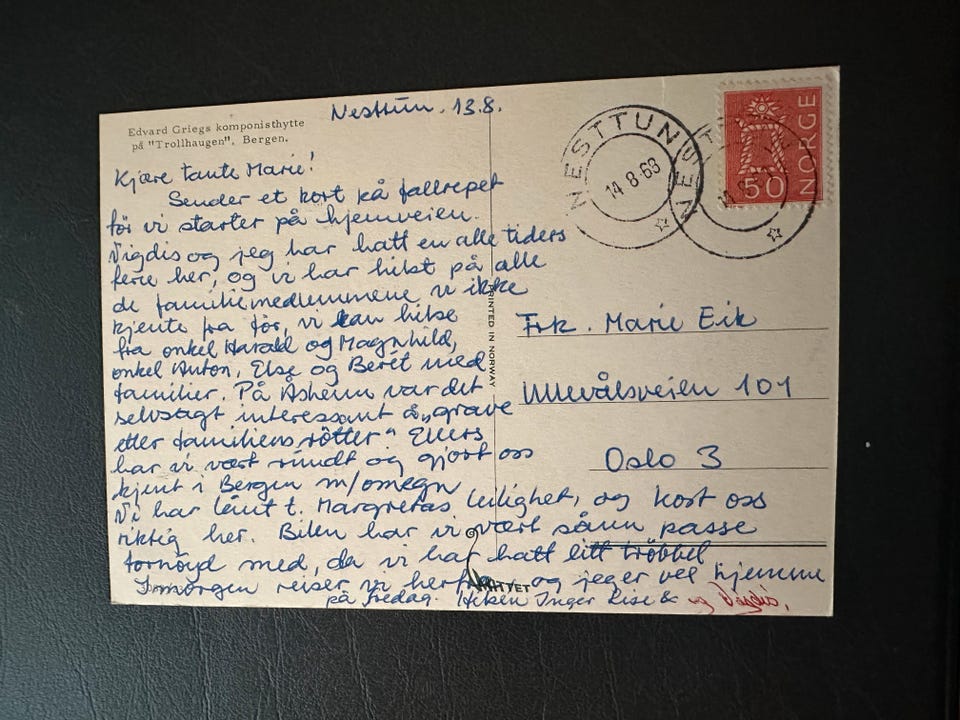 Edvard Griegs komponisthytte
på "Trollhaugen", Bergen.
Nesttun. 13.8.
Kjære tante Marie!
Sender et kort på fallrepet
før vi starter på hjemveien.
Vigdis og jeg har hatt en alle tiders
ferie her, og vi har hilst på alle
de familiemedlemmene vi ikke
kjente fra før, vi kan hilse
fra onkel Harald og Magnhild,
onkel Anton, Else og Berét med
familier. På Åsheim var det
selvsagt interessant å „grave
etter familiens røtter" Ellers
har vi vært rundt og gjort oss
kjent i Bergen m/omegn
Vi har lånt t. Margretas leilighet, og kost oss
riktig her. Bilen har vi vært sånn passe
fornøyd med, da vi har hatt litt trøbbel
Imorgen reiser vi herfra og jeg er vel hjemme
på fredag. Hilsen Inger Lise &
og Vigdis.
PRINTED IN NORWAY
NESTTUN
14.8.68
NESTTUN
NORGE
50
Frk. Marie Eik
Ullevålsveien 101
Oslo 3